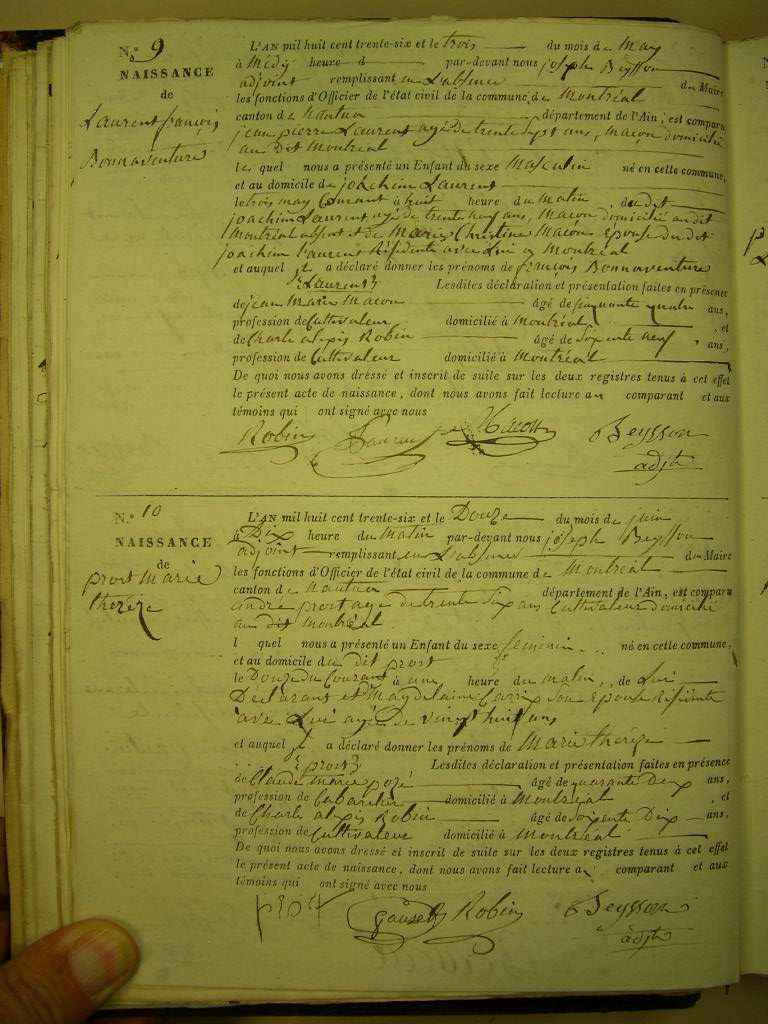 N.° 9
NAISSANCE
de
Laurent françois
Bonnaventure
L'AN mil huit cent trente-six et le trois du mois de May
à Midy heure d par-devant nous joseph Beysson
adjoint remplissant en L'absence du Maire
les fonctions d'Officier de l'état civil de la commune de Montréal
canton de Nantua département de l'Ain, est comparu
jean pierre Laurent agé de trente sept ans, maçon domicilié
au dit Montréal
lequel nous a présenté un Enfant du sexe Masculin né en cette commune,
et au domicile de joachim Laurent
le trois may Courant à huit heure du Matin, du dit
joachim Laurent, agé de trente neuf ans, Macon domicilié au dit
Montréal et de Marie Christine Macon épouse du dit
joachim Laurent Résidente avec Lui a Montréal
et auquel il a déclaré donner les prénoms de françois Bonnaventure
Laurent Lesdites déclaration et présentation faites en présence
de jean Marie Macon âgé de cinquante quatre ans,
profession de Cultivateur domicilié à Montréal, et
de Charle alexis Robin âgé de soixente neuf ans,
profession de Cultivateur domicilié à Montréal
De quoi nous avons dressé et inscrit de suite sur les deux registres tenus à cet effet
le présent acte de naissance, dont nous avons fait lecture au comparant et aux
témoins qui ont signé avec nous
Robin Laurent Macon Beysson
adjt
N.° 10
NAISSANCE
de
prost Marie
thereze
L'AN mil huit cent trente-six et le Douze du mois de juin
à Dix heure du Matin par-devant nous joseph Beysson
adjoint remplissant en L'absence du Maire
les fonctions d'Officier de l'état civil de la commune de Montréal
canton de Nantua département de l'Ain, est comparu
andré prost agé de trente six ans Cultivateur domicilié
au dit Montréal
l quel nous a présenté un Enfant du sexe feminin né en cette commune,
et au domicile du dit prost
le Douze du Courant à une heure du matin, de Lui
Déclarant et Magdelaine son épouse Résidente
avec Lui agée de vingt huit ans
et auquel il a déclaré donner les prénoms de Marie thereze
prost Lesdites déclaration et présentation faites en présence
de Claude marie âgé de quarante Deux ans,
profession de Cabaretier domicilié à Montreal, et
de Charle alexis Robin âgé de soixente Dix ans,
profession de Cultivateur domicilié à Montréal
De quoi nous avons dressé et inscrit de suite sur les deux registres tenus à cet effet
le présent acte de naissance, dont nous avons fait lecture au comparant et aux
témoins qui ont signé avec nous
prost Robin Beysson
adjt